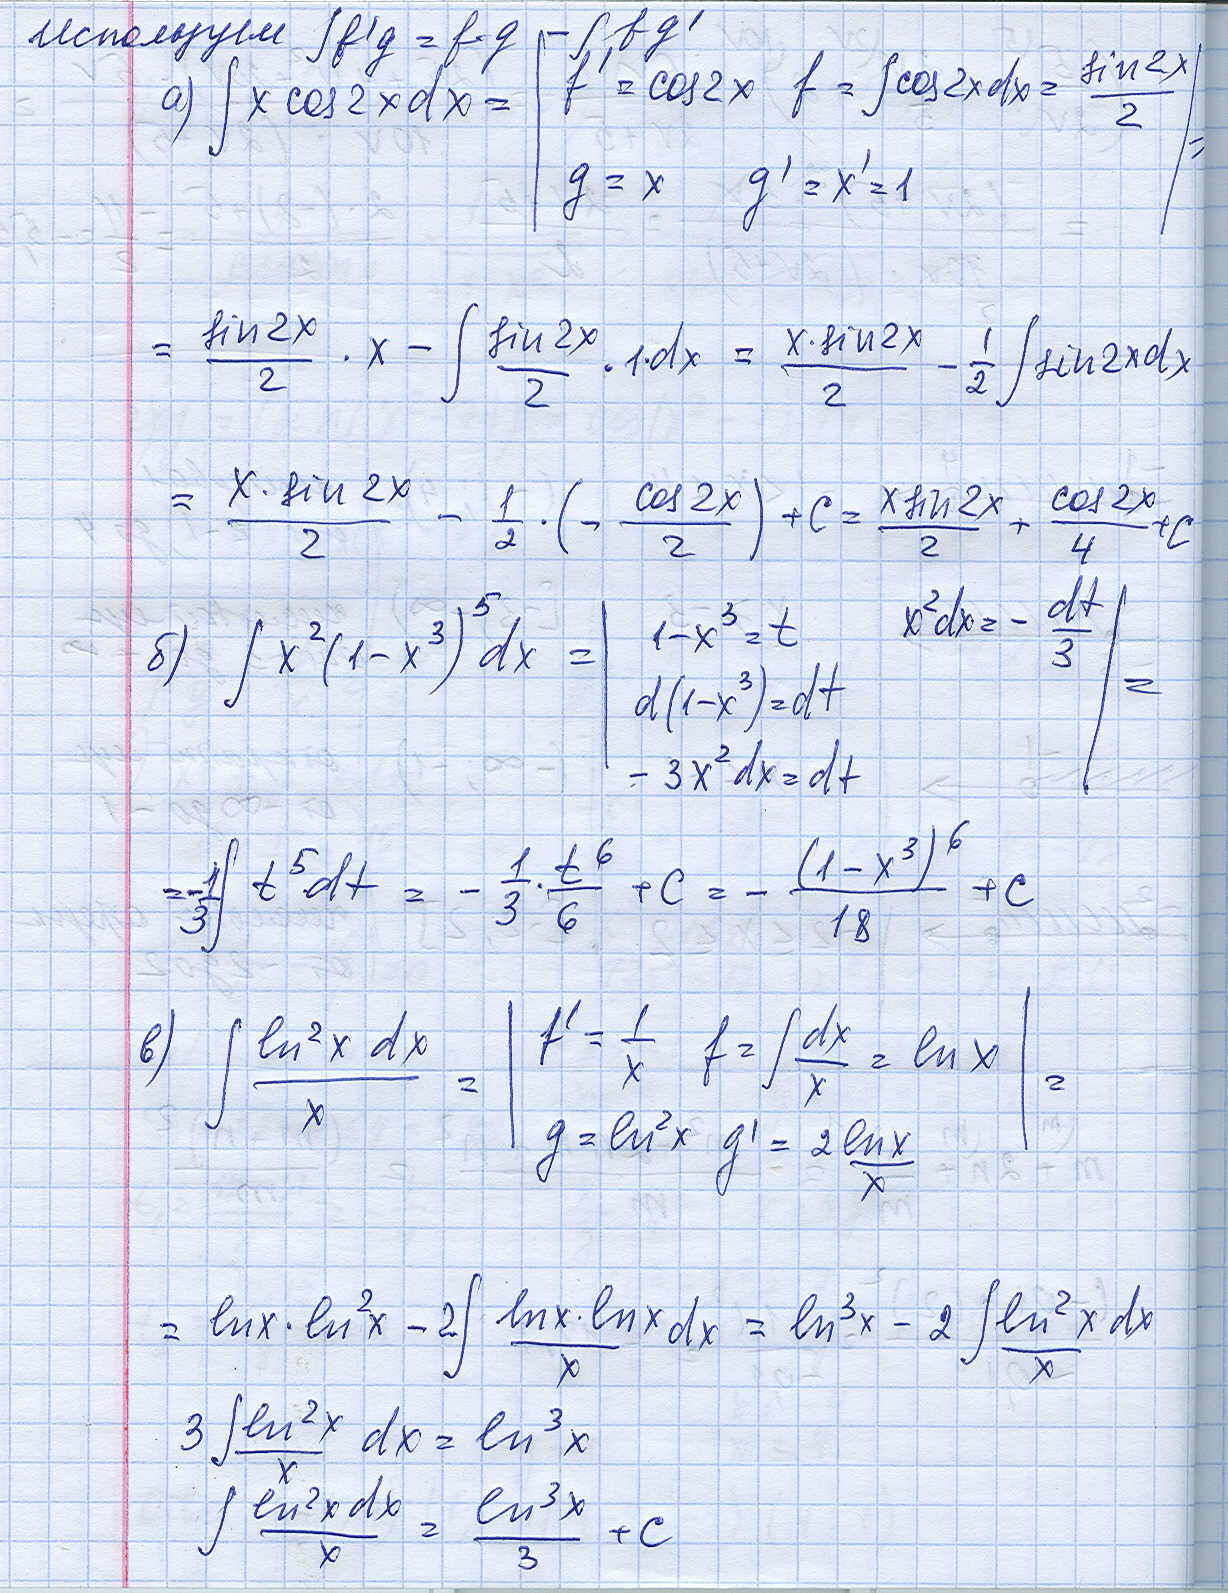 Используем ∫f'g = f·g - ∫fg'
а) ∫x cos2x dx = | f' = cos2x f = ∫cos2xdx = sin2x/2 | =
g = x g' = x' = 1
= sin2x/2 · x - ∫ sin2x/2 · 1·dx = x·sin2x/2 - 1/2 ∫sin2xdx
= x·sin2x/2 - 1/2 · (- cos2x/2) + C = x sin2x/2 + cos2x/4 + C
б) ∫x²(1-x³)⁵dx = | 1-x³ = t x²dx = - dt/3 | =
d(1-x³) = dt
-3x²dx = dt
= -1/3 ∫ t⁵dt = - 1/3 · t⁶/6 + C = - (1-x³)⁶/18 + C
в) ∫ ln²x dx/x = | f' = 1/x f = ∫dx/x = ln x | =
g = ln²x g' = 2lnx/x
= lnx·ln²x - 2∫ lnx·lnx/x dx = ln³x - 2∫ln²x/x dx
3∫ln²x/x dx = ln³x
∫ ln²x dx/x = ln³x/3 + C